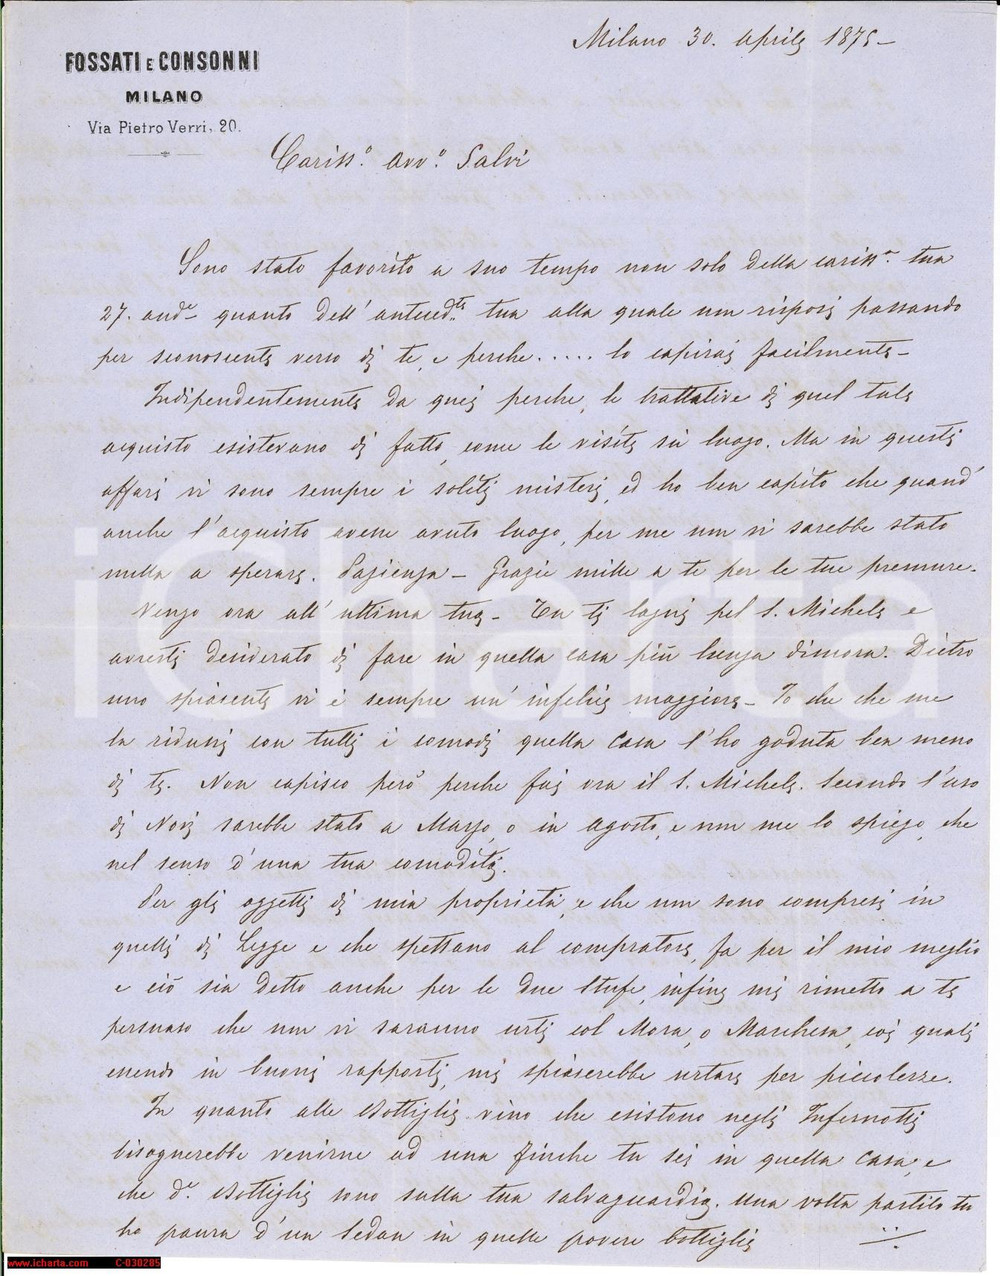 Milano 30. Aprile 1875 –
FOSSATI E CONSONNI
MILANO
Via Pietro Verri, 20.
Cariss.º Avv.º Salvi
Sono stato favorito a suo tempo non solo della cariss.ª tua
27. and.e quanto dell' anteced.te tua alla quale non risposi passando
per sconoscente verso di te, e perche..... lo capirai facilmente –
Indipendentemente da quei perche, le trattative di quel tale
acquisto esistevano di fatto, come le visite su luogo. Ma in questi
affari vi sono sempre i soliti misteri, ed ho ben capito che quand'
anche l'acquisto avesse avuto luogo, per me non vi sarebbe stato
nulla a sperare. Pazienza – Grazie mille a te per le tue premure.
Vengo ora all' ultima tua – Tu ti lagni pel S. Michele e
avresti desiderato di fare in quella casa più lunga dimora. Dietro
uno spiacente vi è sempre un' infelice maggiore – Io che che me
la ridussi con tutti i comodi quella casa l'ho goduta ben meno
di te. Non capisco però perche fai ora il S. Michele. Secondo l'uso
di Novi sarebbe stato a Marzo, o in Agosto, e non me lo spiego, che
nel senso d'una tua comodità.
Per gli oggetti di mia proprietà e che non sono compresi in
quelli di Legge e che spettano al compratore, fa per il mio meglio
e ciò sia detto anche per le due Stufe, infine mi rimetto a te
persuaso che non vi saranno urti col Mora, o Marchesa, coi quali
essendo in buoni rapporti, mi spiacerebbe urtare per piccolezze.
In quanto alle Bottiglie vino che esistono negli Infernotti
bisognerebbe venirne ad una finche tu sei in quella casa, e
che d.e Bottiglie sono sulla tua salvaguardia. Una volta partito tu
ho paura d'un Sedan in quelle povere bottiglie
iCharta
www.icharta.com C-030285